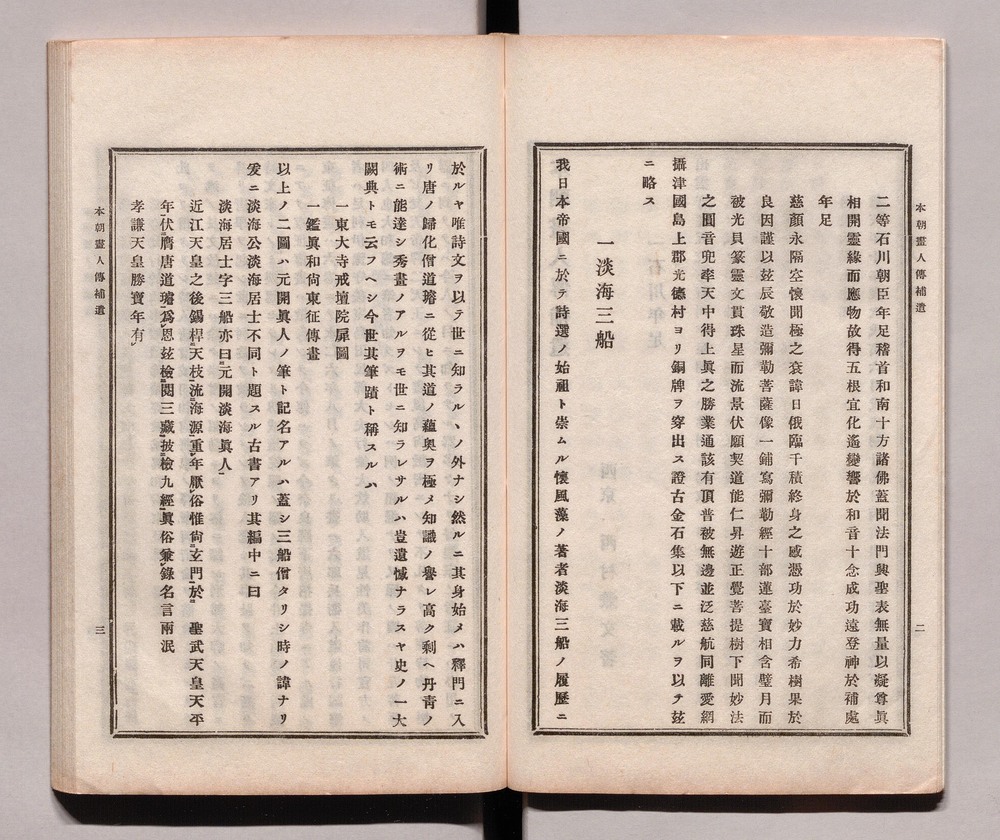 本朝畫人傳補遺
二
二等石川朝臣年足稽首和南十方諸佛蓋聞法門興聖表無量以凝尊眞
相開靈緣而應物故得五根宜化遙變響於和音十念成功遠登神於補處
年足
慈顏永隔空懷聞極之哀諱日俄臨千積終身之感憑功於妙力希樹果於
良因謹以玆辰敬造彌勒菩薩像一鋪寫彌勒經十部蓮臺寶相含璧月而
被光貝篆靈文貫珠星而流景伏願契道能仁昇遊正覺菩提樹下聞妙法
之圓音兜率天中得上眞之勝業通該有頂普被無邊並泛慈航同離愛網
攝津國島上郡光德村ヨリ銅牌ヲ穿出ス證古金石集以下ニ載ルヲ以テ玆
ニ略ス
一淡海三船
我日本帝國ニ於テ詩選ノ始祖ト崇ムル懷風藻ノ著者淡海三船ノ履歷ニ
於ルヤ唯詩文ヲ以テ世ニ知ラルヽノ外ナシ然ルニ其身始メハ釋門ニ入
リ唐ノ歸化僧道璿ニ從ヒ其道ノ蘊奧ヲ極メ知識ノ譽レ高ク剩ヘ丹靑ノ
術ニ能達シ秀畫ノアルヲモ世ニ知ラレサルハ豈遺憾ナラスヤ史ノ一大
闕典トモ云フヘシ今世其筆蹟ト稱スルハ
一東大寺戒壇院扉圖
一鑑眞和尙東征傳畫
以上ノ二圖ハ元開眞人ノ筆ト記名アルハ蓋シ三船僧タリシ時ノ諱ナリ
爰ニ淡海公淡海居士不同ト題スル古書アリ其編中ニ曰
淡海居士字三船亦曰元開淡海眞人
近江天皇之後錫桿天枝流海源重年厭俗惟尙玄門於 聖武天皇天平
年伏膺唐道璿爲恩玆檢閱三藏披檢九經眞俗兼錄名言兩泯
孝謙天皇勝寶年有
本朝畫人傳補遺
三